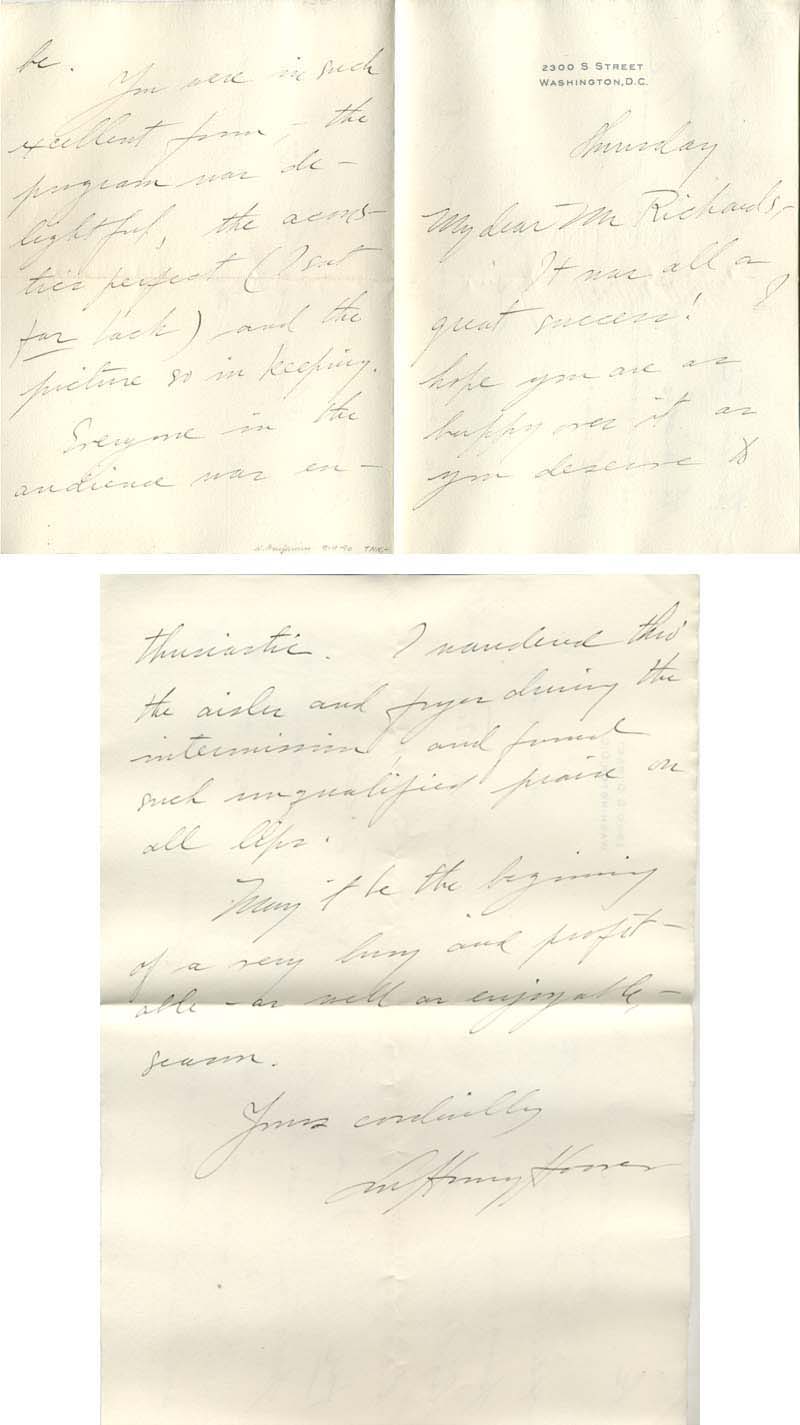 2300 S STREET
WASHINGTON, D.C.
Thursday
My dear Mr Richards,-
It was all a
great success! I
hope you are as
happy over it as
you deserve to
be. You were in such
excellent form, - the
program was de-
lightful, the acous-
tics perfect (I sat
far back) and the
picture so in keeping.
Everyone in the
audience was en-
thusiastic. I wandered thro'
the aisles and foyer during the
intermission, and found
such unqualified praise on
all lips.
May it be the beginning
of a very busy and profit-
able - as well as enjoyable, -
season.
Yours cordially
Lou Henry Hoover